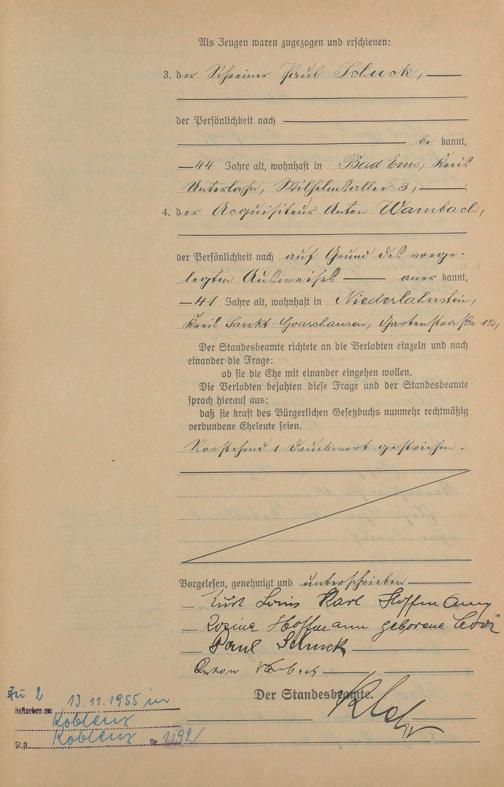 Als Zeugen waren zugezogen und erschienen:
3. der Schreiner Paul Schuck,
der Persönlichkeit nach
be kannt,
44 Jahre alt, wohnhaft in Bad Ems, Kreis
Unterlahn, Wilhelmsallee 5,
4. der Acquisiteur Anton Wambach,
der Persönlichkeit nach auf Grund des vorge-
legten Ausweises aner kannt,
41 Jahre alt, wohnhaft in Niederlahnstein,
Kreis Sankt Goarshausen, Gartenstraße 12,
Der Standesbeamte richtete an die Verlobten einzeln und nach
einander die Frage:
ob sie die Ehe mit einander eingehen wollen.
Die Verlobten bejahten diese Frage und der Standesbeamte
sprach hierauf aus:
daß sie kraft des Bürgerlichen Gesetzbuchs nunmehr rechtmäßig
verbundene Eheleute seien.
Vorstehend 1 Druckwort gestrichen.
Vorgelesen, genehmigt und unterschrieben
Kurt Louis Karl Hoffmann
Rosina Hoffmann geborene
Paul Schuck
Anton
Der Standesbeamte.
Zu 2
Gestorben am 13.11.1955 in
Koblenz
St.A. Koblenz Nr.